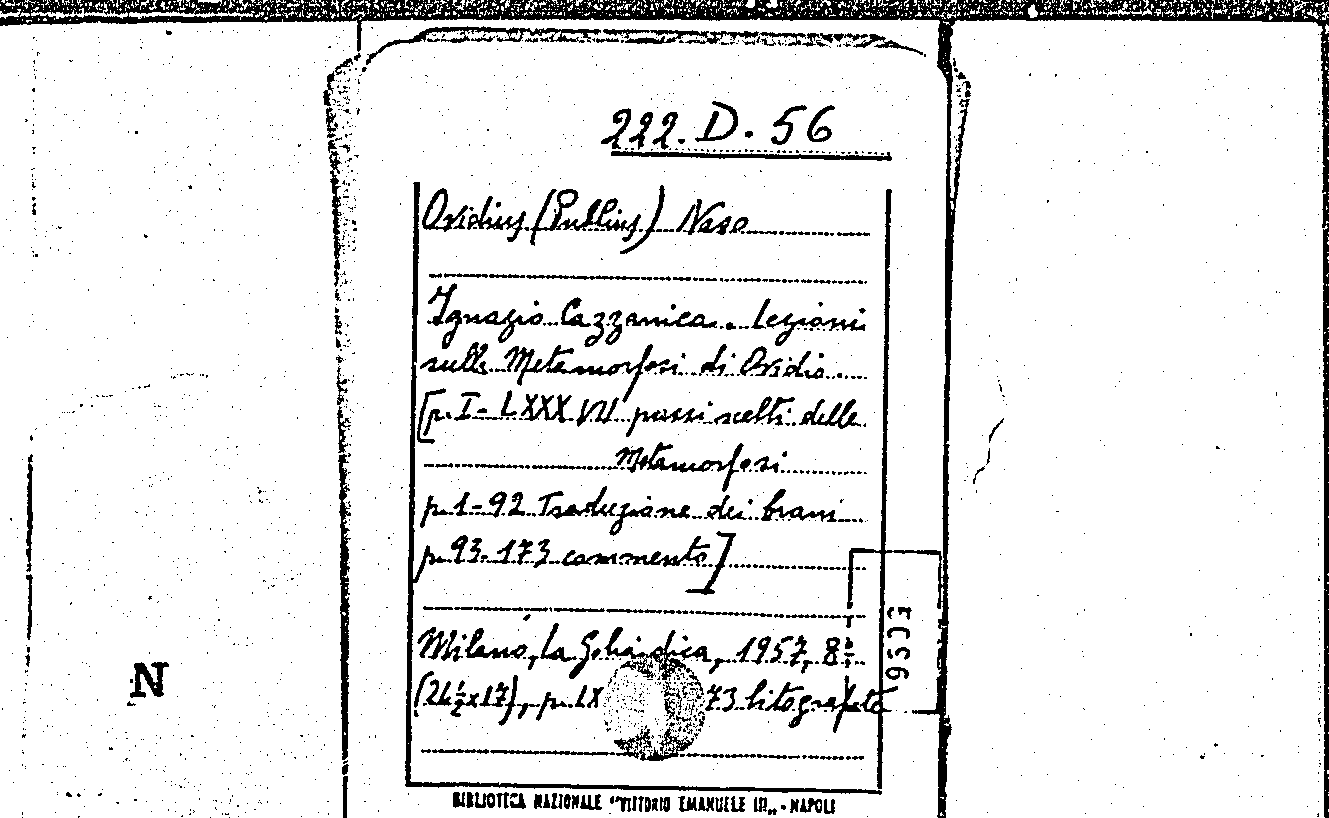 222.D.56
Ovidius (Publius) Naso
Ignazio Cazzaniga. Lezioni
sulle Metamorfosi di Ovidio.
[p. I-LXXXVII passi scelti delle
Metamorfosi
p. 1-92 Traduzione dei brani
p. 93-173 commento]
Milano, La Goliardica, 1957, 8º
(24½x17), p. LX 73 litografate
N
BIBLIOTECA NAZIONALE "VITTORIO EMANUELE III" - NAPOLI